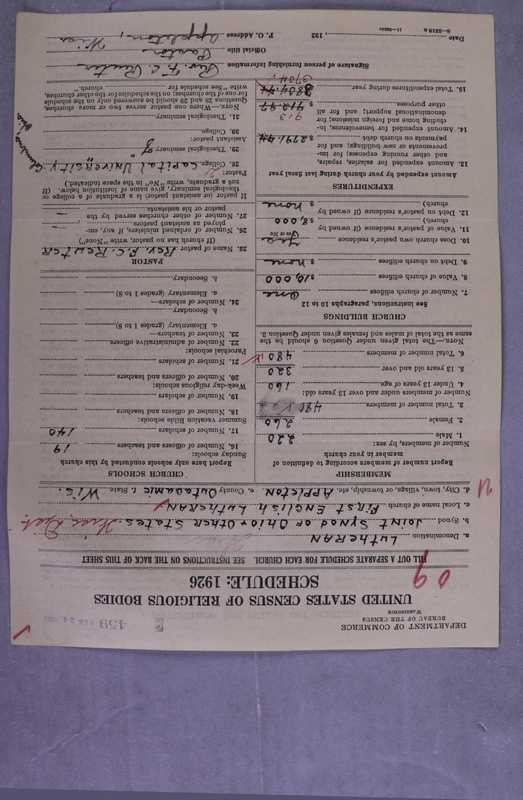 DEPARTMENT OF COMMERCE
BUREAU OF THE CENSUS
WASHINGTON
459
UNITED STATES CENSUS OF RELIGIOUS BODIES
SCHEDULE: 1926
FILL OUT A SEPARATE SCHEDULE FOR EACH CHURCH. SEE INSTRUCTIONS ON THE BACK OF THIS SHEET
a. Denomination LUTHERAN
b. Synod JOINT SYNOD OF OHIO & OTHER STATES.
c. Local name of church FIRST ENGLISH LUTHERAN
d. City, town, village, or township, etc. APPLETON e. County & State OUTAGAMIE, WIS.
MEMBERSHIP
Report number of members according to definition of member in your church
Number of members, by sex:
1. Male 220
2. Female 260
3. Total number of members 480
Number of members under and over 13 years old:
4. Under 13 years of age 160
5. 13 years old and over 320
6. Total number of members 480
NOTE.—The total given under Question 6 should be the same as the total of males and females given under Question 3.
CHURCH BUILDINGS
See instructions, paragraphs 10 to 12
7. Number of church edifices One
8. Value of church edifices $10,000
9. Debt on church edifices $ none
10. Does church own pastor's residence Yes
(Yes or No)
11. Value of pastor's residence (if owned by church) $8,000
12. Debt on pastor's residence (if owned by church) $ none
EXPENDITURES
Amount expended by your church during last fiscal year
13. Amount expended for salaries, repairs, and other running expenses; for improvements or new buildings; and for payments on church debt $2791.44
14. Amount expended for benevolences, including home and foreign missions; for denominational support; and for all other purposes $ 912.97
913
15. Total expenditures during year
3704
CHURCH SCHOOLS
Report here only schools conducted by this church
Sunday schools:
16. Number of officers and teachers 19
17. Number of scholars 140
Summer vacation Bible schools:
18. Number of officers and teachers
19. Number of scholars
Week-day religious schools:
20. Number of officers and teachers
21. Number of scholars
Parochial schools:
22. Number of administrative officers
23. Number of teachers—
a. Elementary (grades 1 to 8)
b. Secondary
24. Number of scholars—
a. Elementary (grades 1 to 8)
b. Secondary
PASTOR
25. Name of pastor Rev. F. C. REUTER
(If church has no pastor, write "None")
26. Number of ordained ministers, if any, employed as assistant pastors —
27. Number of other churches served by the pastor or his assistants —
If pastor (or assistant pastor) is a graduate of a college or theological seminary, give name of institution below. (If not a graduate, write "No" in the space indicated.)
Pastor:
28. College CAPITAL UNIVERSITY
29. Theological seminary
Assistant pastor:
30. College
31. Theological seminary
NOTE.—Where one pastor serves two or more churches, Questions 25 and 28 should be answered only on the schedule for one of the churches; on the schedules for the other churches, write "See schedule for church."
Signature of person furnishing information Rev. F. C. Reuter
Official title Pastor
P. O. Address Appleton, Wis
Date , 192